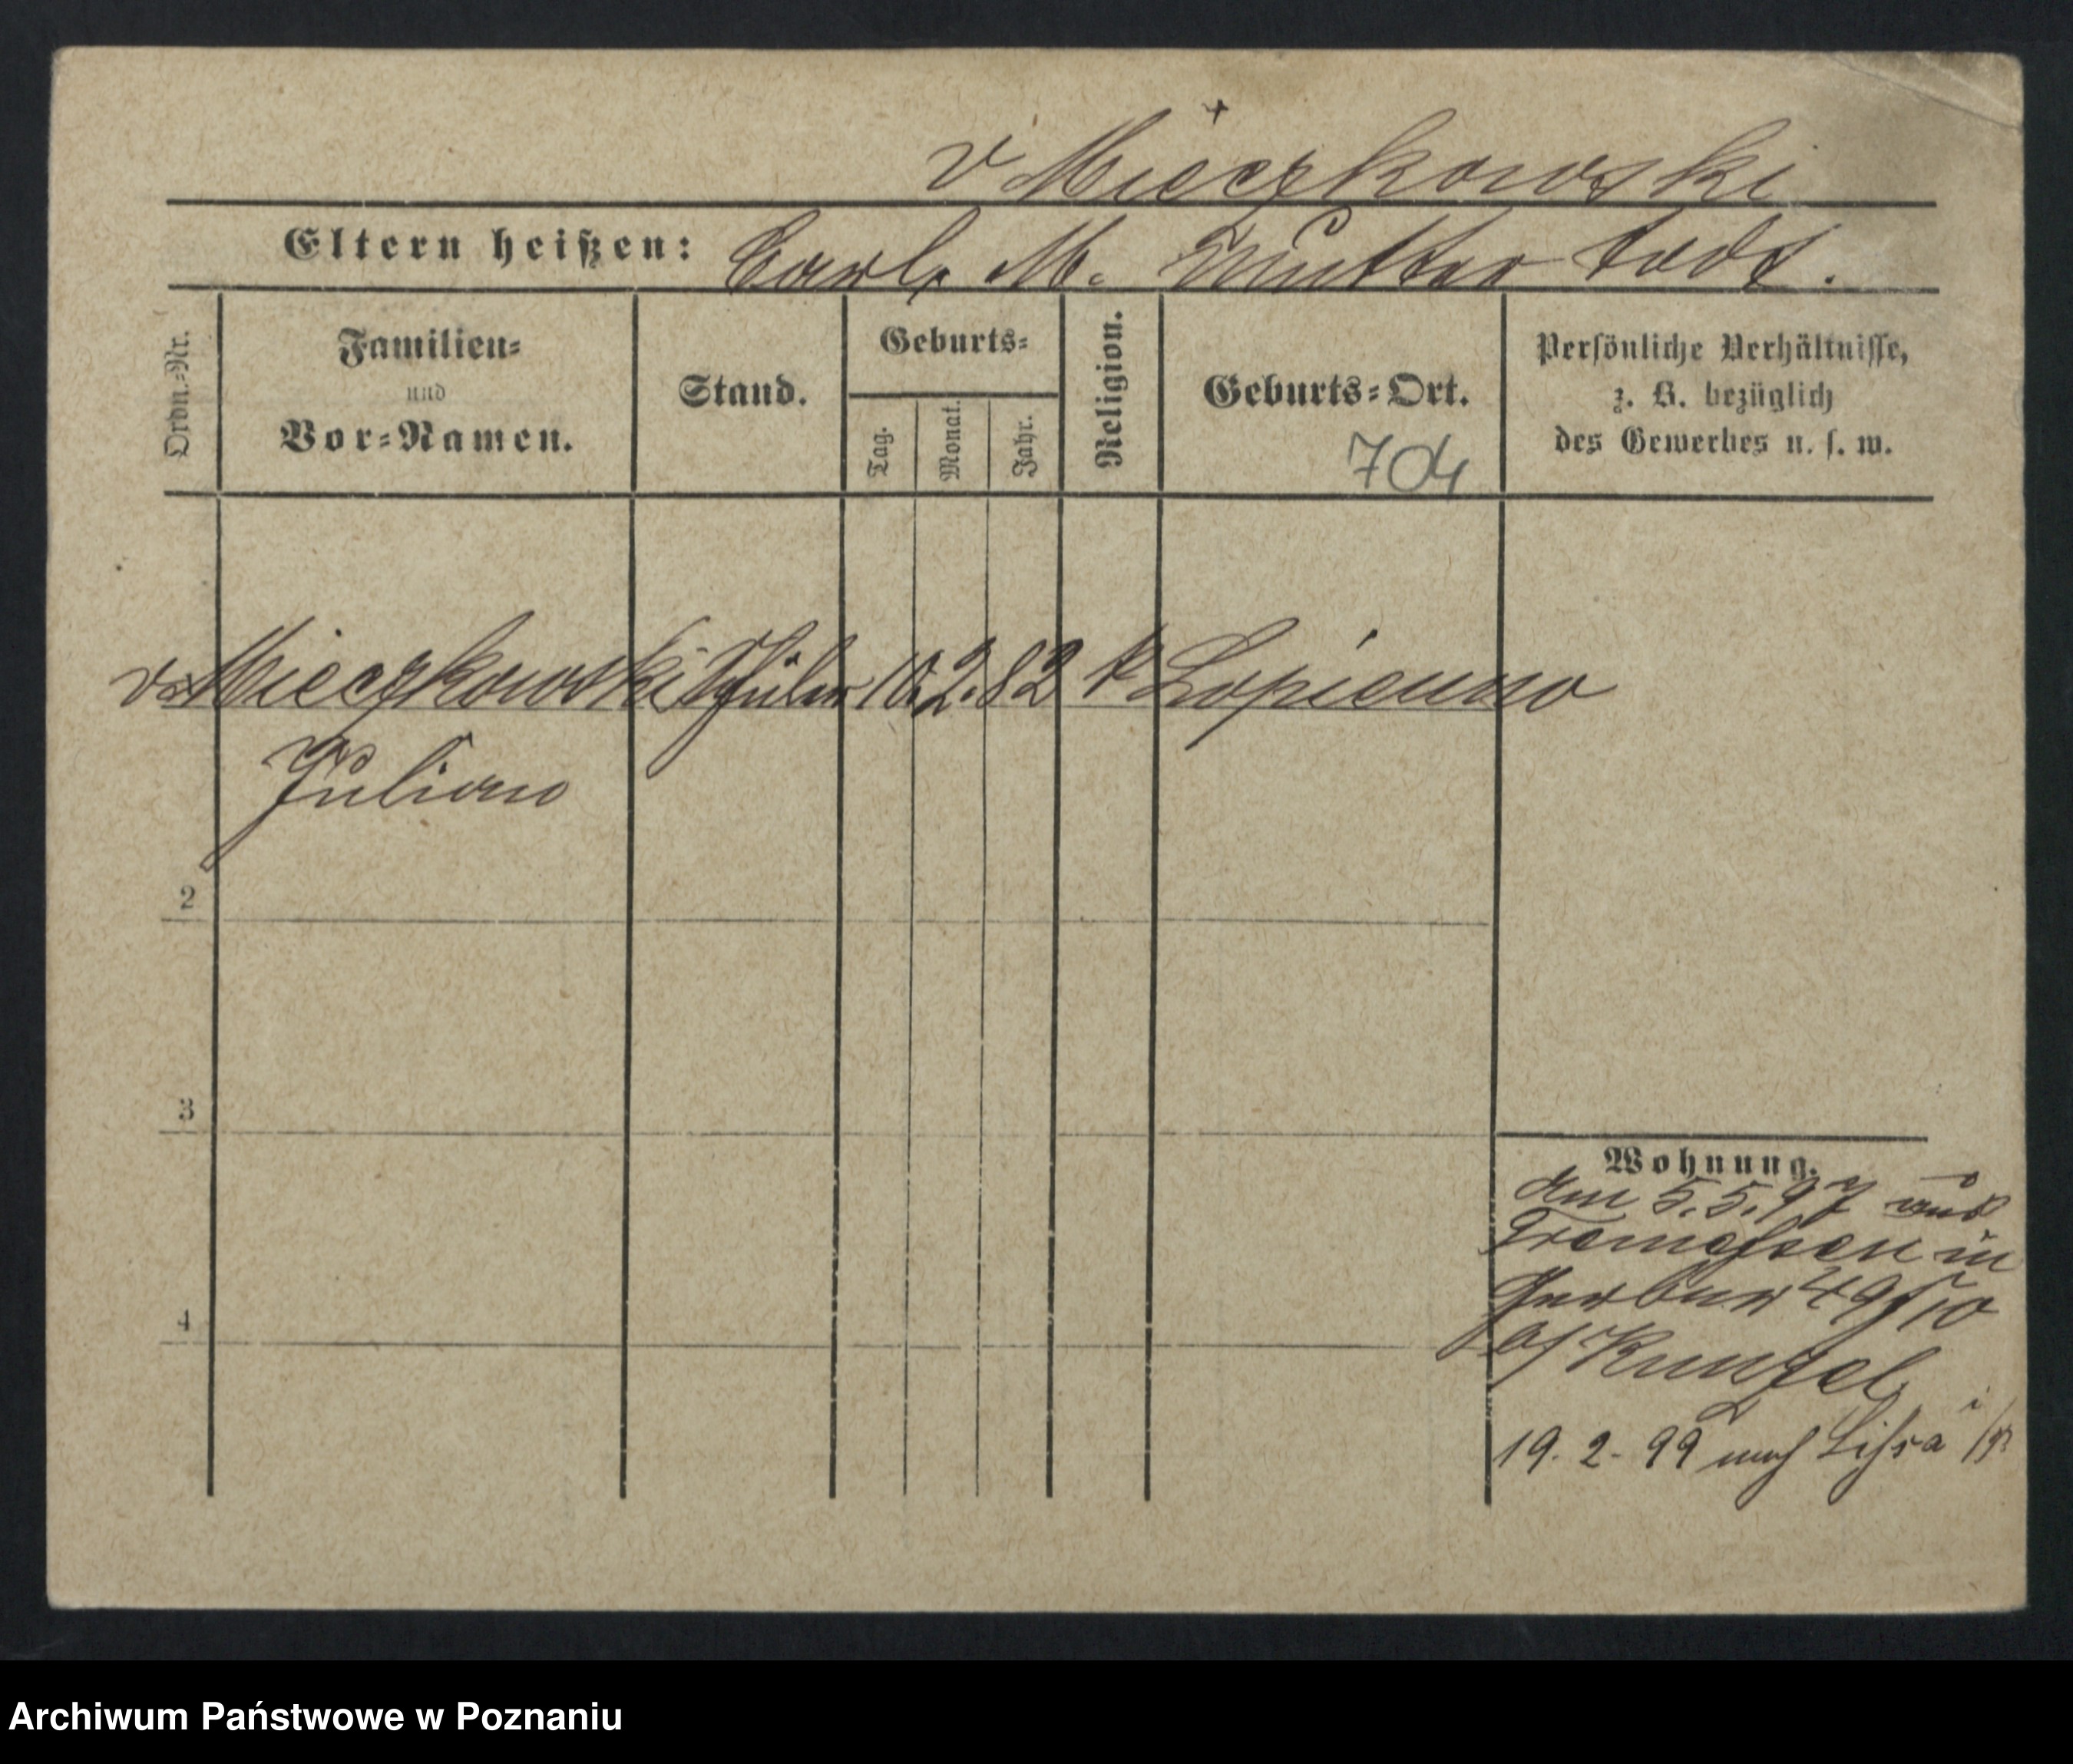 v Mieczkowski
Eltern heißen: Carl M. Mutter todt.
Ordn.-Nr.
Familien-
und
Vor-Namen.
Stand.
Geburts-
Tag.
Monat.
Jahr.
Religion.
Geburts-Ort.
704
Persönliche Verhältnisse,
z. B. bezüglich
des Gewerbes u. s. w.
v. Mieczkowski Schüler 10. 2. 82 k Lopienno
Julian
2
3
4
Wohnung.
Am 5.5.97 aus
Tremessen in
Gerber 49/50
b/ Kunzel
19. 2. 99 nach Lissa i/P
Archiwum Państwowe w Poznaniu